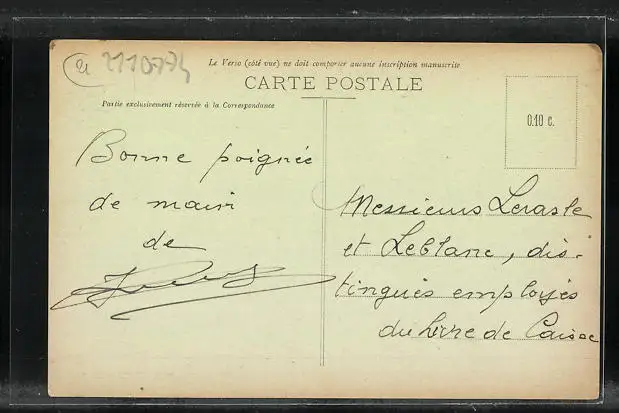 21 2110774
Le Verso (côté vue) ne doit comporter aucune inscription manuscrite
CARTE POSTALE
Partie exclusivement réservée à la Correspondance
0.10 c.
Bonne poignée
de main
de
Messieurs Leraste
et Leblanc, dis-
tingués employés
du livre de Caisse